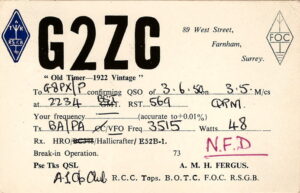 R.S.G.B.
G2ZC
89 West Street,
Farnham,
Surrey.
FOC
" Old Timer—1922 Vintage "
To G8PX/P confirming QSO of 3.6.50 on 3.5 M/cs
at 2234 RST 569 QRM.
Your frequency (accurate to +0.01%)
Tx BA/PA CC/VFO Freq 3515 Watts 48
Rx. HRO/ /Hallicrafter/ E52B-1. N.F.D
Break-in Operation. 73
Pse Tks QSL A. M. H. FERGUS.
A1 Op Club R.C.C. Taps. B.O.T.C. F.O.C. R.S.G.B.